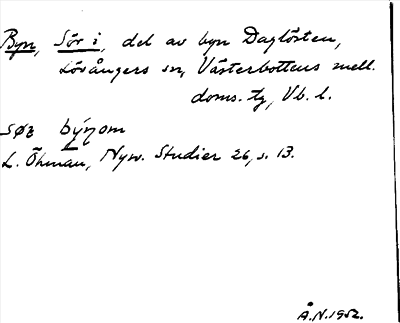 Byn, Sör i, del av byn Daglösten,
Lövångers sn, Västerbottens mell.
doms. tg, Vb. l.
søz býnom
L. Öhman, Nysv. Studier 26, s. 13.
Å.N. 1952.